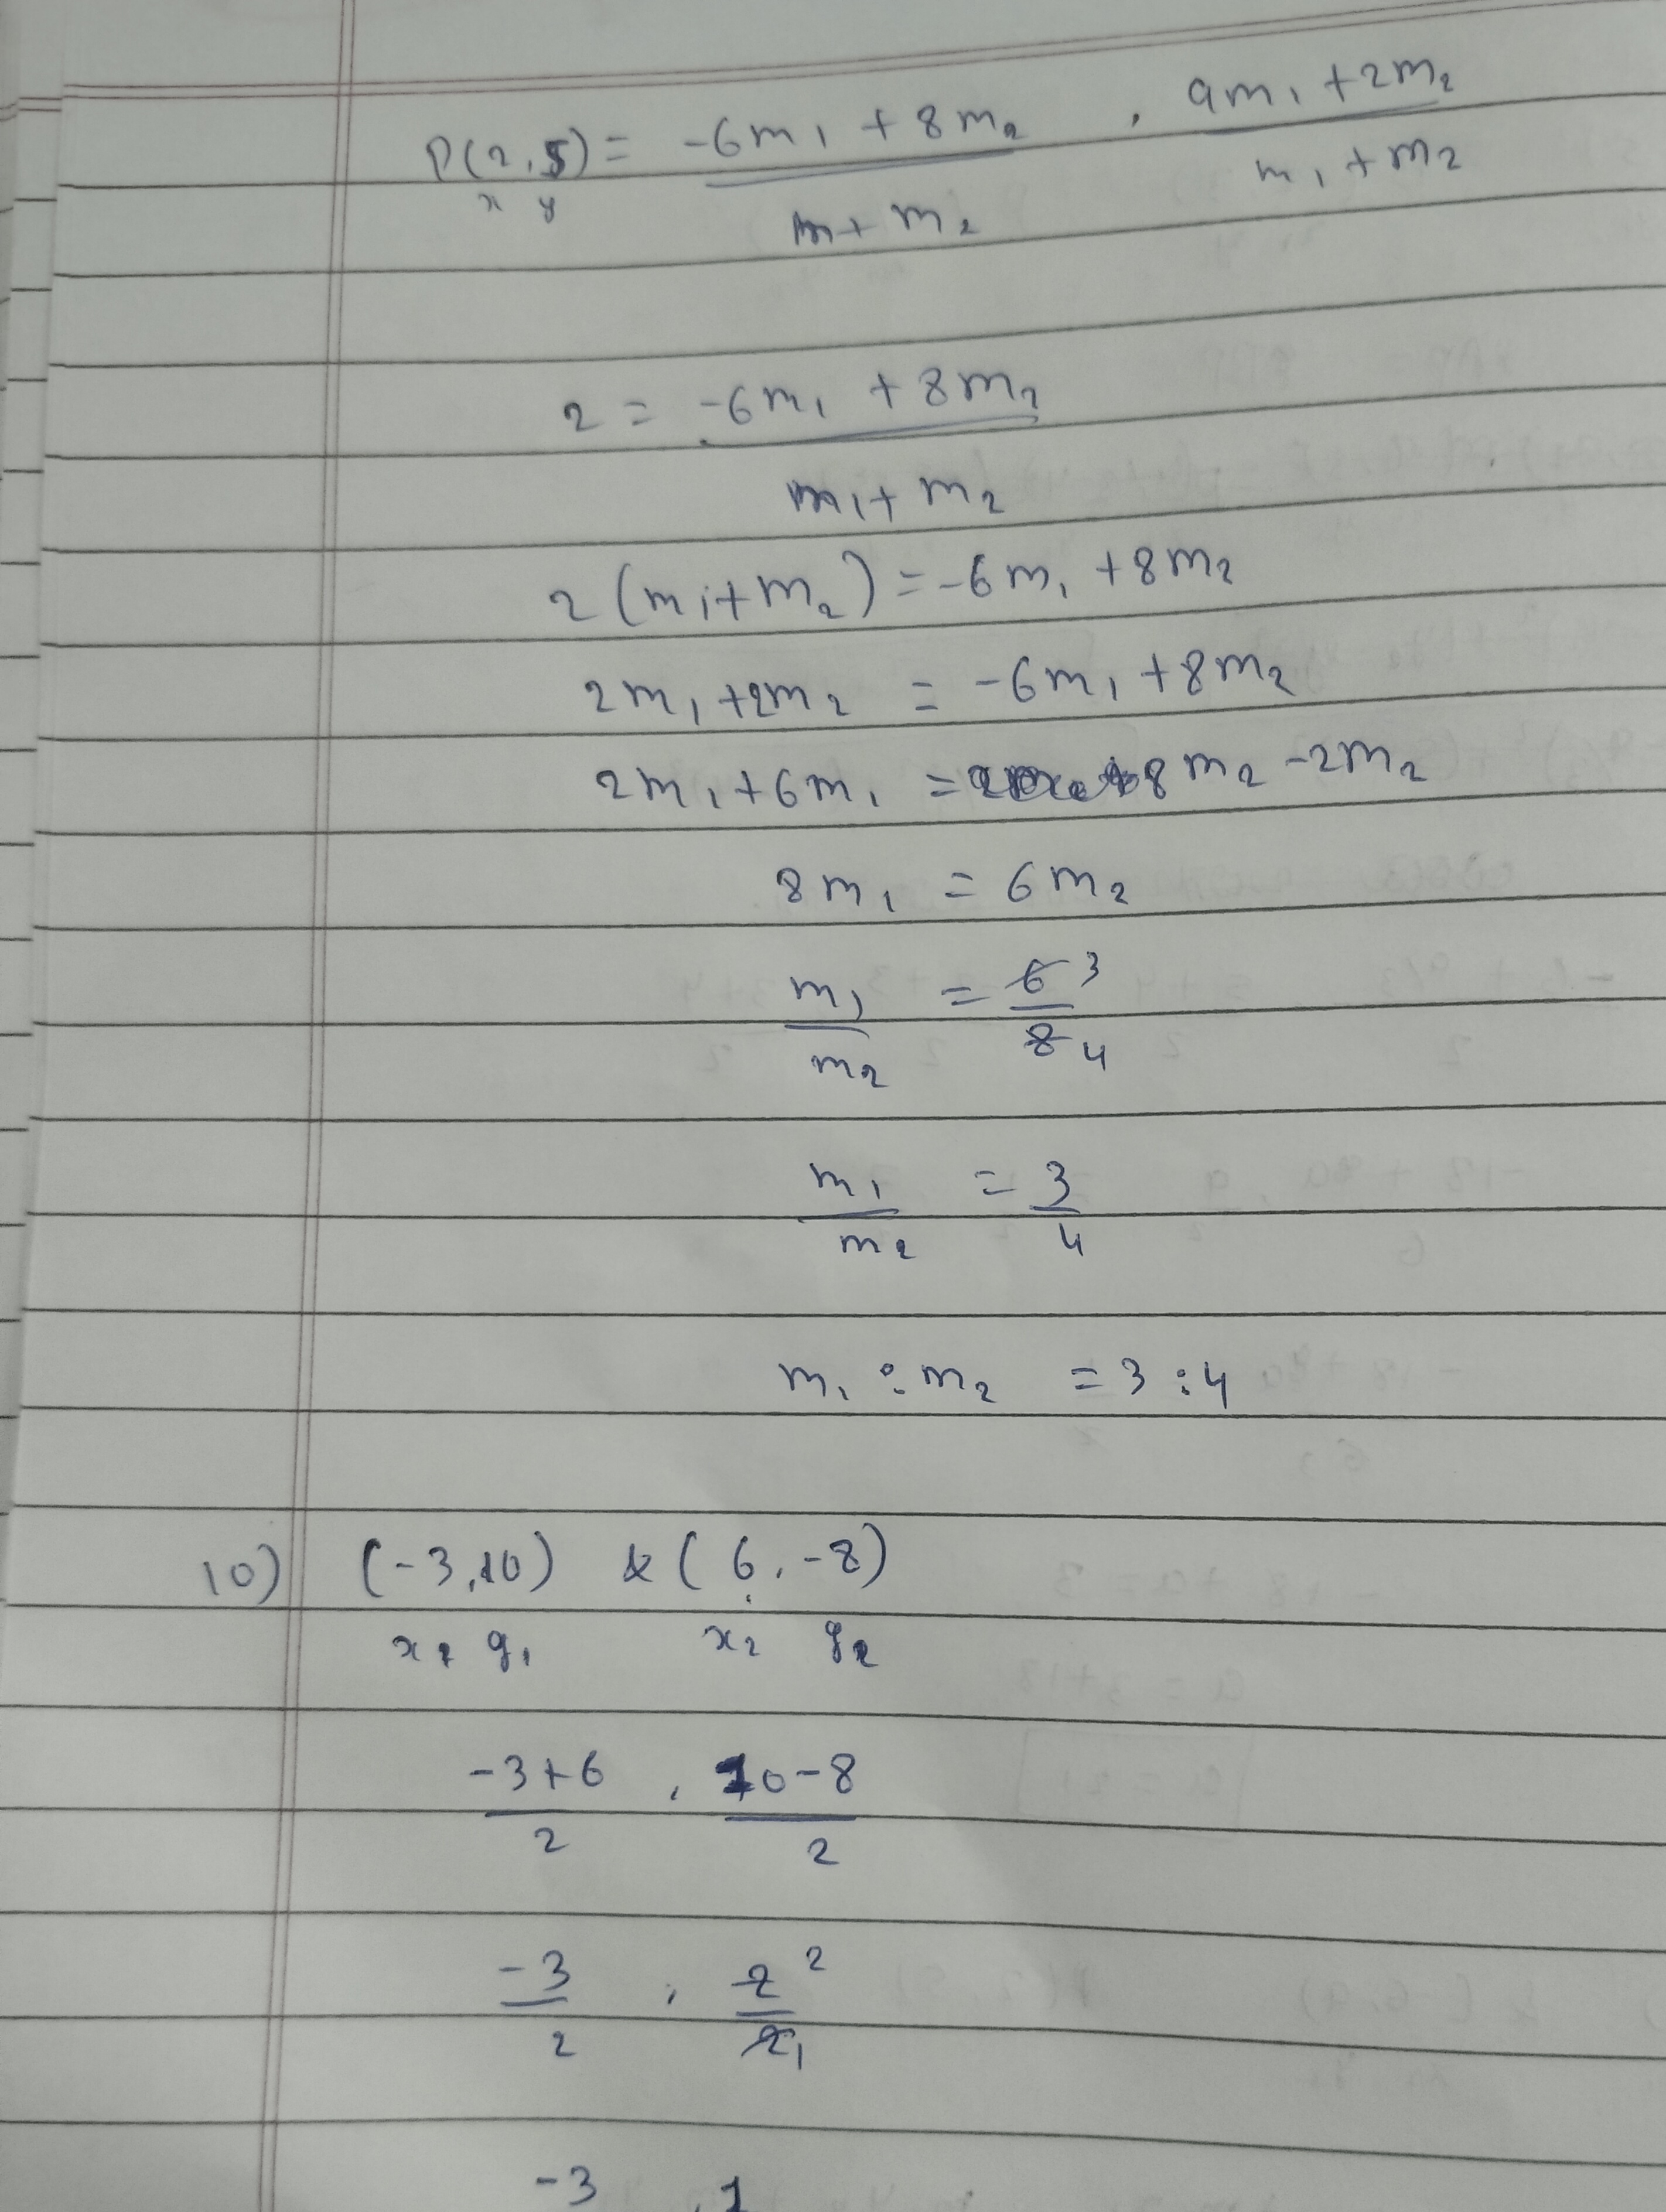 P(2,5) = -6m₁ + 8m₂ / m+ m₂ , 9m₁ + 2m₂ / m₁ + m₂
x y
2 = -6m₁ + 8m₂ / m₁+ m₂
2 (m₁+m₂) = -6m₁ +8m₂
2m₁ +2m₂ = -6m₁ +8m₂
2m₁+6m₁ = 8m₂ -2m₂
8m₁ = 6m₂
m₁ / m₂ = 6 3 / 8 4
m₁ / m₂ = 3 / 4
m₁ : m₂ = 3 : 4
10) (-3,10) & (6,-8)
y₁ x₂ y₂
-3+6 / 2 , 10-8 / 2
-3 / 2 , 2 2 / 2 1
-3 , 1